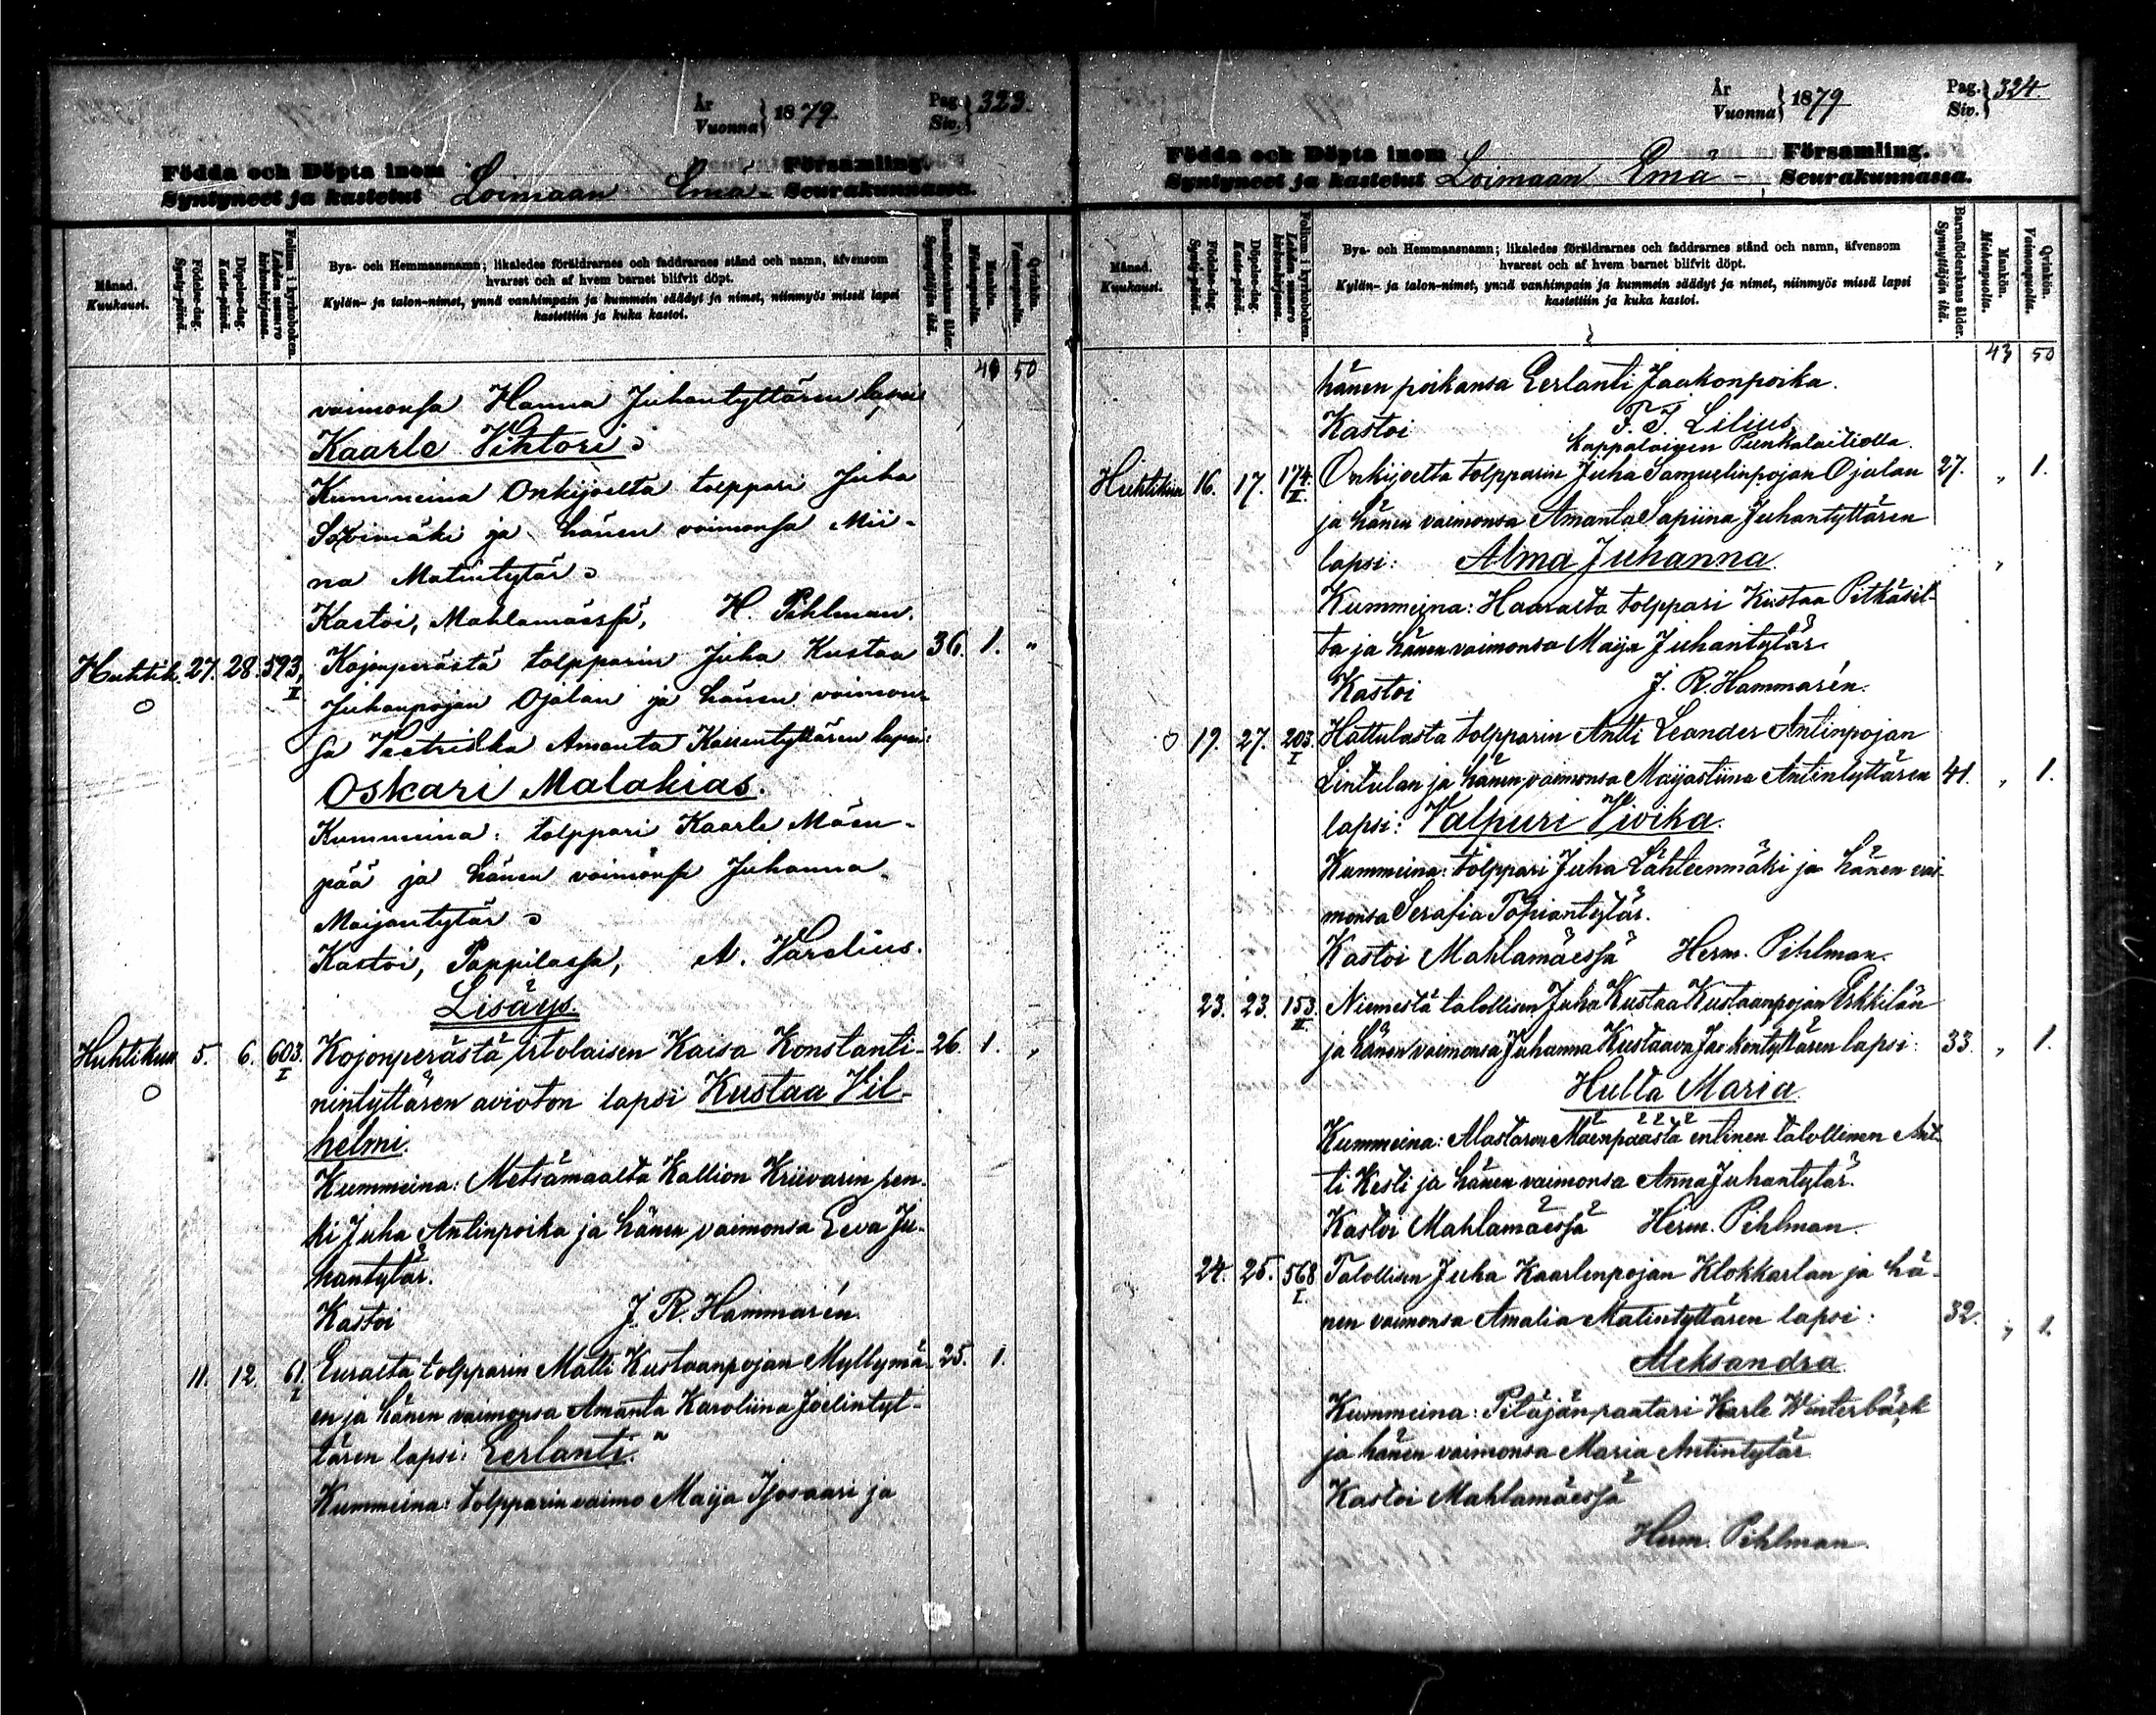 År
Vuonna } 1879.
Pag.
Siv. } 323.
Födda och Döpta inom Församling.
Syntyneet ja kastetut Loimaan Emä- Seurakunnassa.
Månad.
Kuukausi.
Födelse-dag.
Synty-päivä.
Döpelse-dag.
Kaste-päivä.
Folium i kyrkoboken.
Lehden numero kirkonkirjassa.
Bya- och Hemmansnamn; likaledes föräldrarnes och faddrarnes stånd och namn, äfvensom
hvarest och af hvem barnet blifvit döpt.
Kylän- ja talon-nimet, ynnä vanhimpain ja kummein säädyt ja nimet, niinmyös missä lapsi
kastettiin ja kuka kastoi.
Barnaföderskans ålder.
Synnyttäjän ikä.
Mankön.
Miehenpuolia.
Qvinkön.
Vaimonpuolia.
50
vaimonsa Hanna Juhantyttären lapsi
Kaarle Vihtori
Kummeina Onkijoelta tolppari Juha
Savimäki ja hänen vaimonsa Mii-
na Matintytär
Kastoi, Mahlamäessä, H. Pihlman.
Huhtik. 27. 28. 593, II Kojonperästä tolpparin Juha Kustaa 36. 1. "
Juhanpojan Ojalan ja hänen vaimon-
sa Amanta lapsi:
Oskari Malakias.
Kummeina: tolppari Kaarle Mäen-
pää ja hänen vaimonsa Juhanna
Maijantytär
Kastoi, Pappilassa, A. Varelius.
Lisäys.
Huhtikuu 5. 6. 603. I Kojonperästä itolaisen Kaisa Konstanti- 26. 1. "
nintyttären avioton lapsi Kustaa Vil-
helmi.
Kummeina: Metsämaalta Kallion Kriivarin pen-
ki Juha Antinpoika ja hänen vaimonsa Eeva Ju-
hantytär.
Kastoi J. R. Hammarén.
11. 12. 61. I Euralta tolpparin Matti Kustaanpojan Myllymä- 25. 1.
en ja hänen vaimonsa Amanta Karoliina Joelintyt-
tären lapsi: Eerlanti."
Kummeina: tolpparin vaimo Maija Isosaari ja
År
Vuonna } 1879
Pag.
Siv. } 324.
Födda och Döpta inom Församling.
Syntyneet ja kastetut Loimaan Emä- Seurakunnassa.
Månad.
Kuukausi.
Födelse-dag.
Synty-päivä.
Döpelse-dag.
Kaste-päivä.
Folium i kyrkoboken.
Lehden numero kirkonkirjassa.
Bya- och Hemmansnamn; likaledes föräldrarnes och faddrarnes stånd och namn, äfvensom
hvarest och af hvem barnet blifvit döpt.
Kylän- ja talon-nimet, ynnä vanhimpain ja kummein säädyt ja nimet, niinmyös missä lapsi
kastettiin ja kuka kastoi.
Barnaföderskans ålder.
Synnyttäjän ikä.
Mankön.
Miehenpuolia.
Qvinkön.
Vaimonpuolia.
43 50
hänen poikansa Eerlanti Jaakonpoika.
Kastoi F. F. Lilius
Kappalainen Punkalaitiolla.
Huhtikuu 16. 17. 174. II. Onkijoelta tolpparin Juha Samuelinpojan Ojalan 27. " 1.
ja hänen vaimonsa Amanta Sapiina Juhantyttären
lapsi: Alma Juhanna.
Kummeina: Haaralta tolppari Kustaa Pitkäsil-
ta ja hänen vaimonsa Maija Juhantytär.
Kastoi J. R. Hammarén.
19. 27. 203. I Hattulasta tolpparin Antti Leander Antinpojan
Lintulan ja hänen vaimonsa Maijastiina Antintyttären 41. " 1.
lapsi: Valpuri Vivika.
Kummeina: tolppari Juha Lähteenmäki ja hänen vai-
monsa Serafia Topiantytär.
Kastoi Mahlamäessä Herm. Pihlman.
23. 23. 153. II. Niemestä talollisen Juha Kustaa Kustaanpojan Erkkilän
ja hänen vaimonsa Juhanna Kustaava Jaakontyttären lapsi: 33. " 1.
Hulta Maria.
Kummeina: Alastaron Mäenpäästä entinen talollinen Ant-
ti Kesti ja hänen vaimonsa Anna Juhantytär.
Kastoi Mahlamäessä Herm. Pihlman.
24. 25. 568 I. Talollisen Juha Kaarlenpojan Klokkarlan ja hä-
nen vaimonsa Amalia Matintyttären lapsi: 32. " 1.
Aleksandra.
Kummeina: Pitäjänraatari Karle Winterbäck
ja hänen vaimonsa Maria Antintytär
Kastoi Mahlamäessä
Herm. Pihlman.